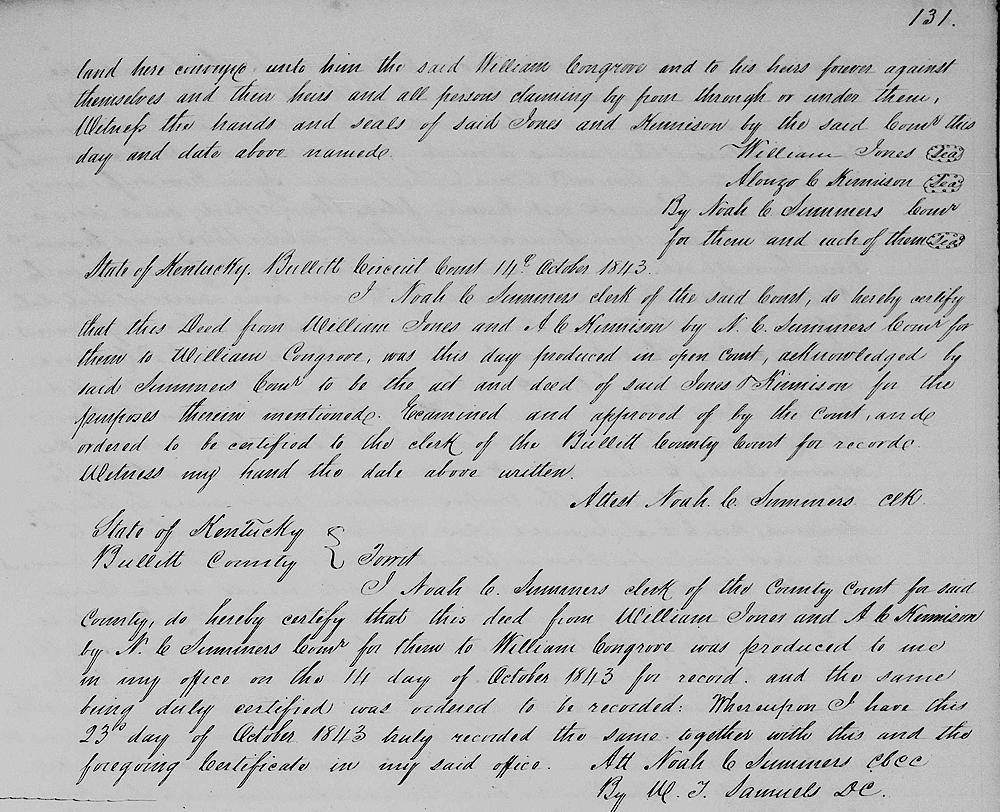 131.
land here conveyed unto him the said William Congrove and to his heirs forever against
themselves and their heirs and all persons claiming by from through or under them,
Witness the hands and seals of said Jones and Kennison by the said Comr this
day and date above named. William Jones Seal
Alonzo C Kinnison Seal
By Noah C Summers Comr
for them and each of them Seal
State of Kentucky. Bullitt Circuit Court 14th October 1843.
I Noah C Summers clerk of the said Court, do hereby certify
that this Deed from William Jones and A C Kennison by N. C. Summers Comr for
them to William Congrove, was this day produced in open court, acknowledged by
said Summers Comr to be the act and deed of said Jones & Kinnison for the
purposes therein mentioned. Examined and approved of by the Court, and
ordered to be certified to the clerk of the Bullitt County Court for record.
Witness my hand the date above written.
Attest Noah. C. Summers clk.
State of Kentucky
Bullitt County
I Noah C. Summers clerk of the County Court for said
County, do hereby certify that this deed from William Jones and A C Kennison
by N. C Summers Comr for them to William Congrove was produced to me
in my office on the 14 day of October 1843 for record. and the same
being duly certified was ordered to be recorded: Whereupon I have this
23d day of October 1843 truly recorded the same together with this and the
foregoing Certificate in my said office. Att Noah C Summers cbcc
By W. T. Samuels DC.